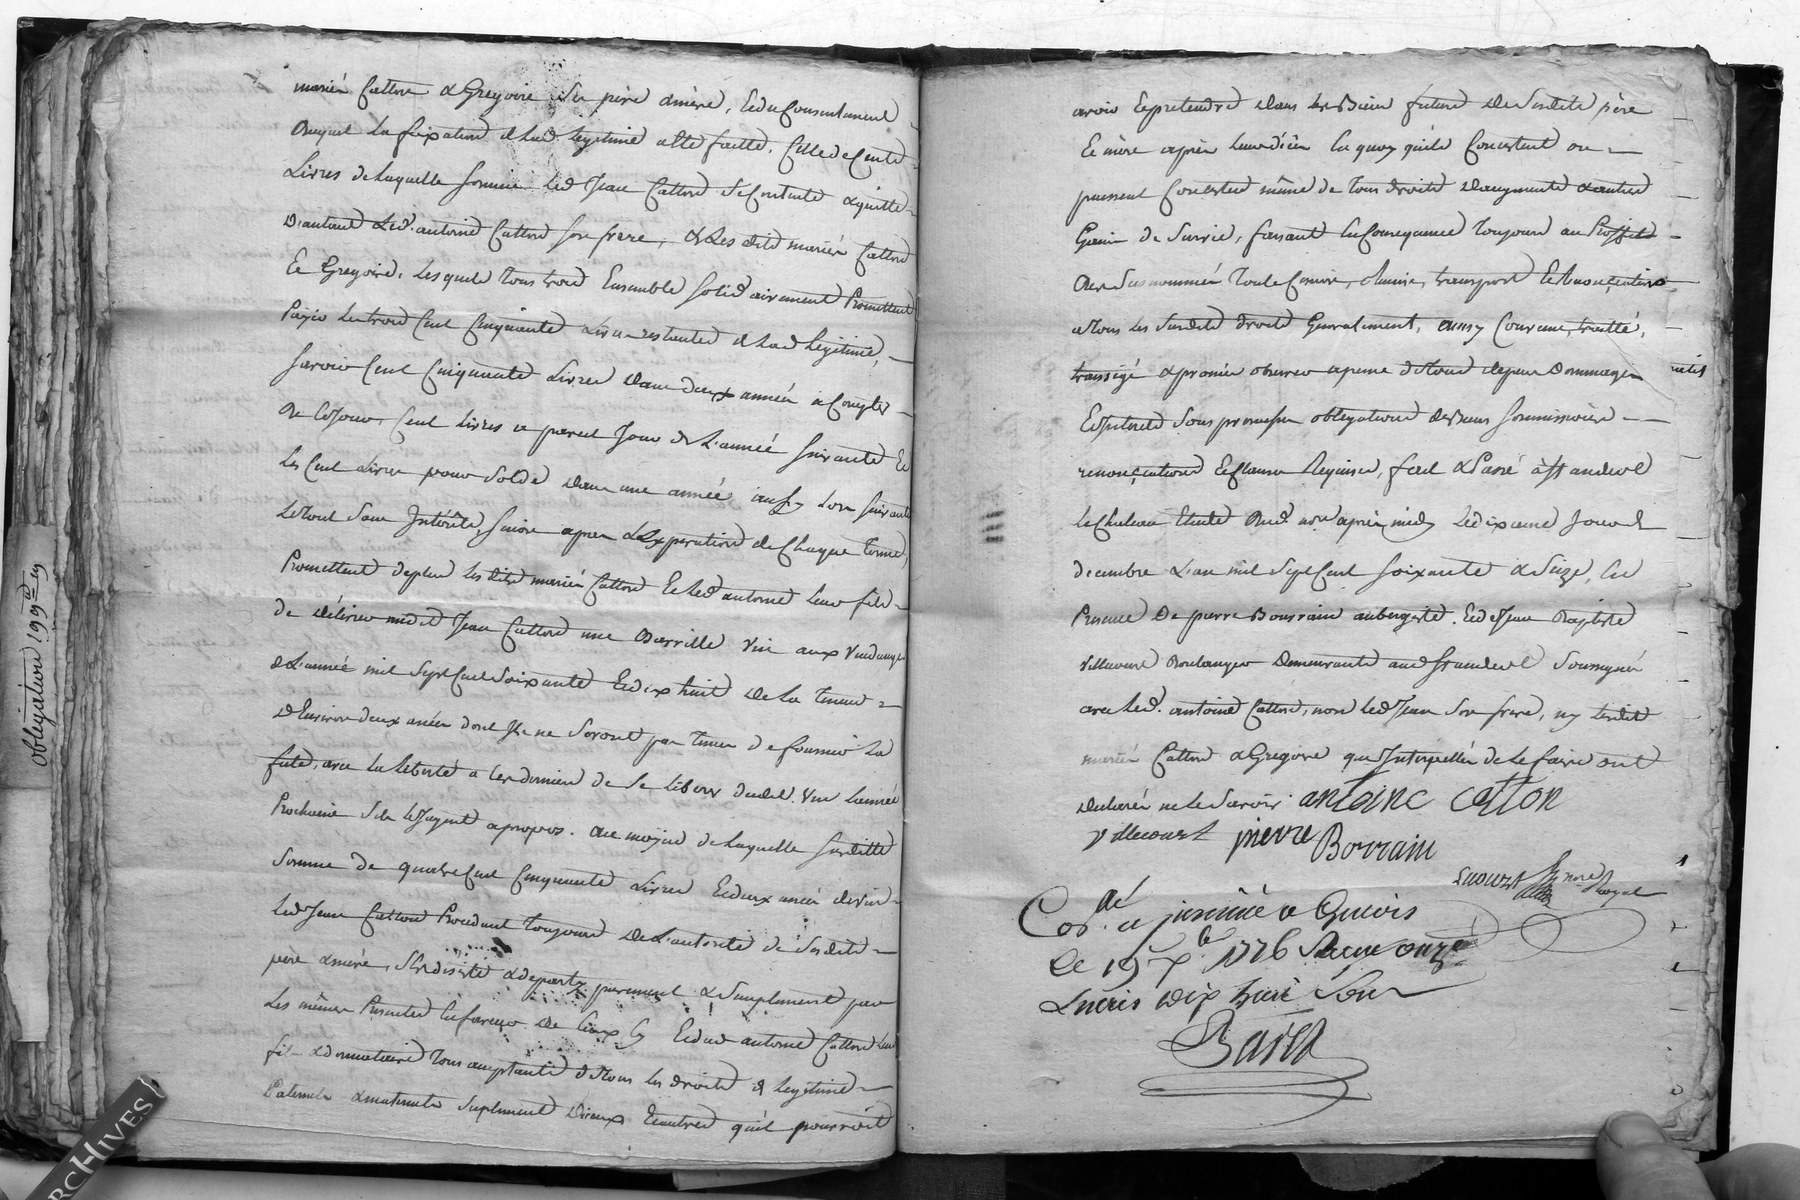 mariés Catton & Gregoire ses père & mère, Et du Consentement
duquel la fixation de lad. legitime a été faitte, Celle de Cente
Livres de laquelle somme led. Jean Catton se Contente & quitte
d'autant led. antoine Catton son frere, & les dits mariés Catton
Et Gregoire, lesquels tous trois Ensemble solidairement Promettent
Payer les trois Cent Cinquante Livres restantes de lad. legitime,
savoir Cent Cinquante Livres dans deux années a Compter
de Ce Jour, Cent Livres a pareil Jour de L'année suivante Et
les Cent Livres pour Solde dans une année aussy lors suivante
le tout sans Intérêts, sinon apres L'Expiration de Chaque terme,
Promettant de plus les dits mariés Catton Et led. antoine leur fils
de délivrer aud. Jean Catton une Barrille vin aux vendanges
de L'année mil sept Cent soixante Et dix huit de la teneur
d'Environ deux anées dont Ils ne seront pas tenus de fournir la
futte, avec la liberté a Ces derniers de se liberer dudit vin l'année
Prochaine s'ils le Jugent apropos. au moyen de laquelle susditte
somme de quatre Cent Cinquante Livres Et deux anées de vin
led. Jean Catton Procedant toujours de L'autorité de sesdits
père & mere, s'Est desisté & departy purement & simplement par
les mêmes Presentes En faveur de Ceux Cy Et dud. antoine Catton leur
fils & donnataire tous acceptants de tous les droits de legitime
Paternels & maternels suplement d'iceux Et autres qu'il pourroit
obligation 199
avoir Et pretendre dans les Biens futurs de sesdits père
Et mère après leurs décès En quoy qu'ils Consistent ou
puissent Consister même de tous droits d'augment & autres
Gains de survie, faisant En Consequence toujours au Proffit
des susnommés toute Cession, demission, transport Et renonciation
de tous les susdits droits Generalement, ainsy Convenu, traitté,
transigé & promis observer a peine de tous depens Dommages
Et Interets sous promesses obligations de Biens soumissions
renonciations Et Clauses Requises, fait & Passé à St andeol
le Chateau Etude dud. nore après midy le dixieme Jour de
decembre L'an mil sept Cent soixante & Seize, En
Presence De pierre Bourrain aubergiste, Et de Jean Baptiste
Villecourt Boulanger demeurants aud. St andeol Soussignés
avec led. antoine Catton, non led. Jean son frere, ny lesdits
mariés Catton & Gregoire qui Interpellés de le faire ont
declarés ne le savoir. antoine Catton
villecourt pierre Bovrain
nore Royal
Coé. et insinué a Givors
Le 19 Xbre 1776 Recue onze
Livres dix huit sous